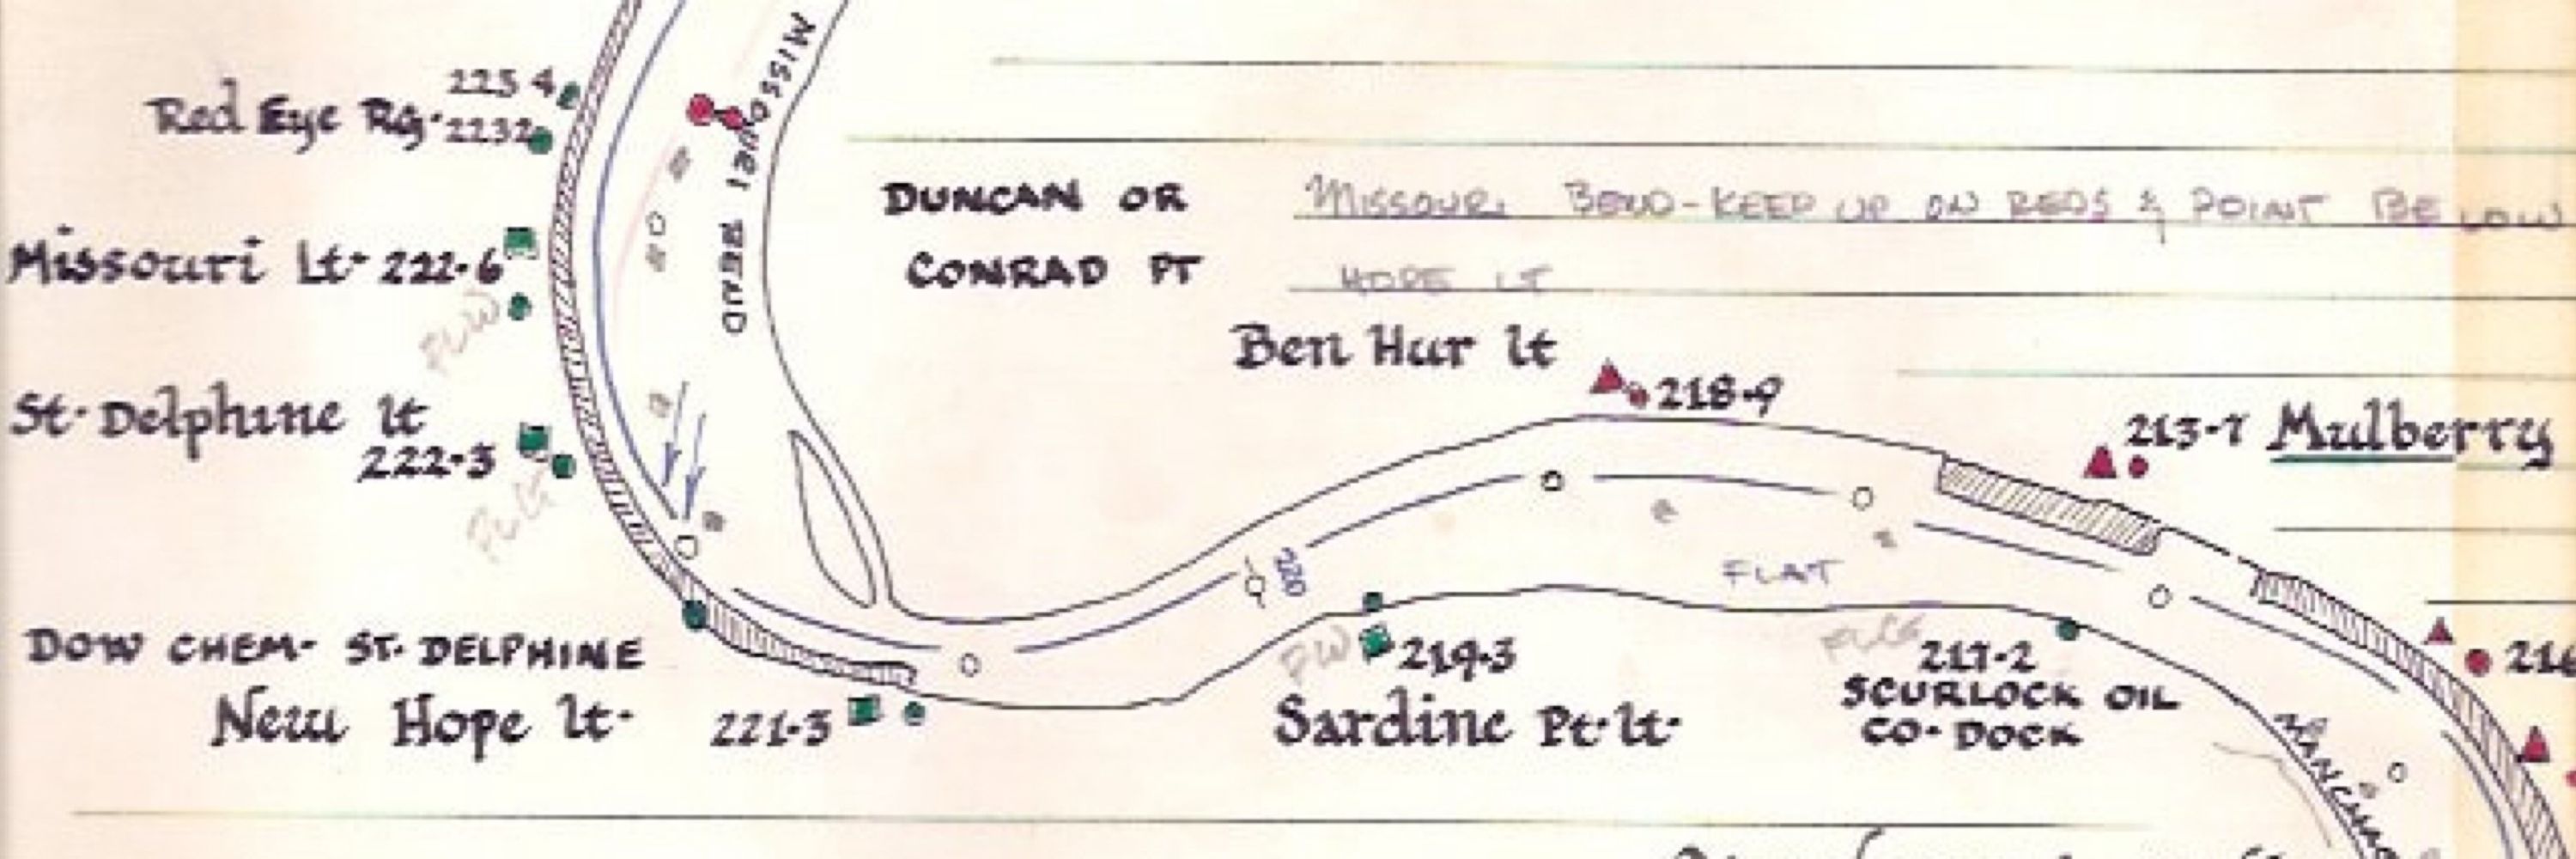 MISSOURI BEND
223 4
Red Eye Rg. 223 2
DUNCAN OR
CONRAD PT
MISSOURI BEND - KEEP UP ON REDS & POINT BELOW
HOPE LT
Missouri Lt. 222.6
FLW
Ben Hur lt
218.9
St. Delphine lt
222.3
213.7 Mulberry
220
FLAT
DOW CHEM. ST. DELPHINE
New Hope lt.
221.3
FLW
219.3
Sardine Pt. lt.
217.2
SCURLOCK OIL
CO. DOCK
216
MANCHAC